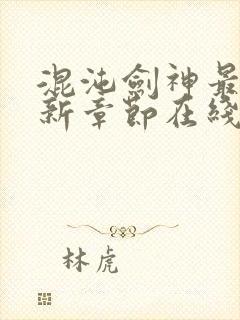 混沌劍神最
新章節在綫
林虎